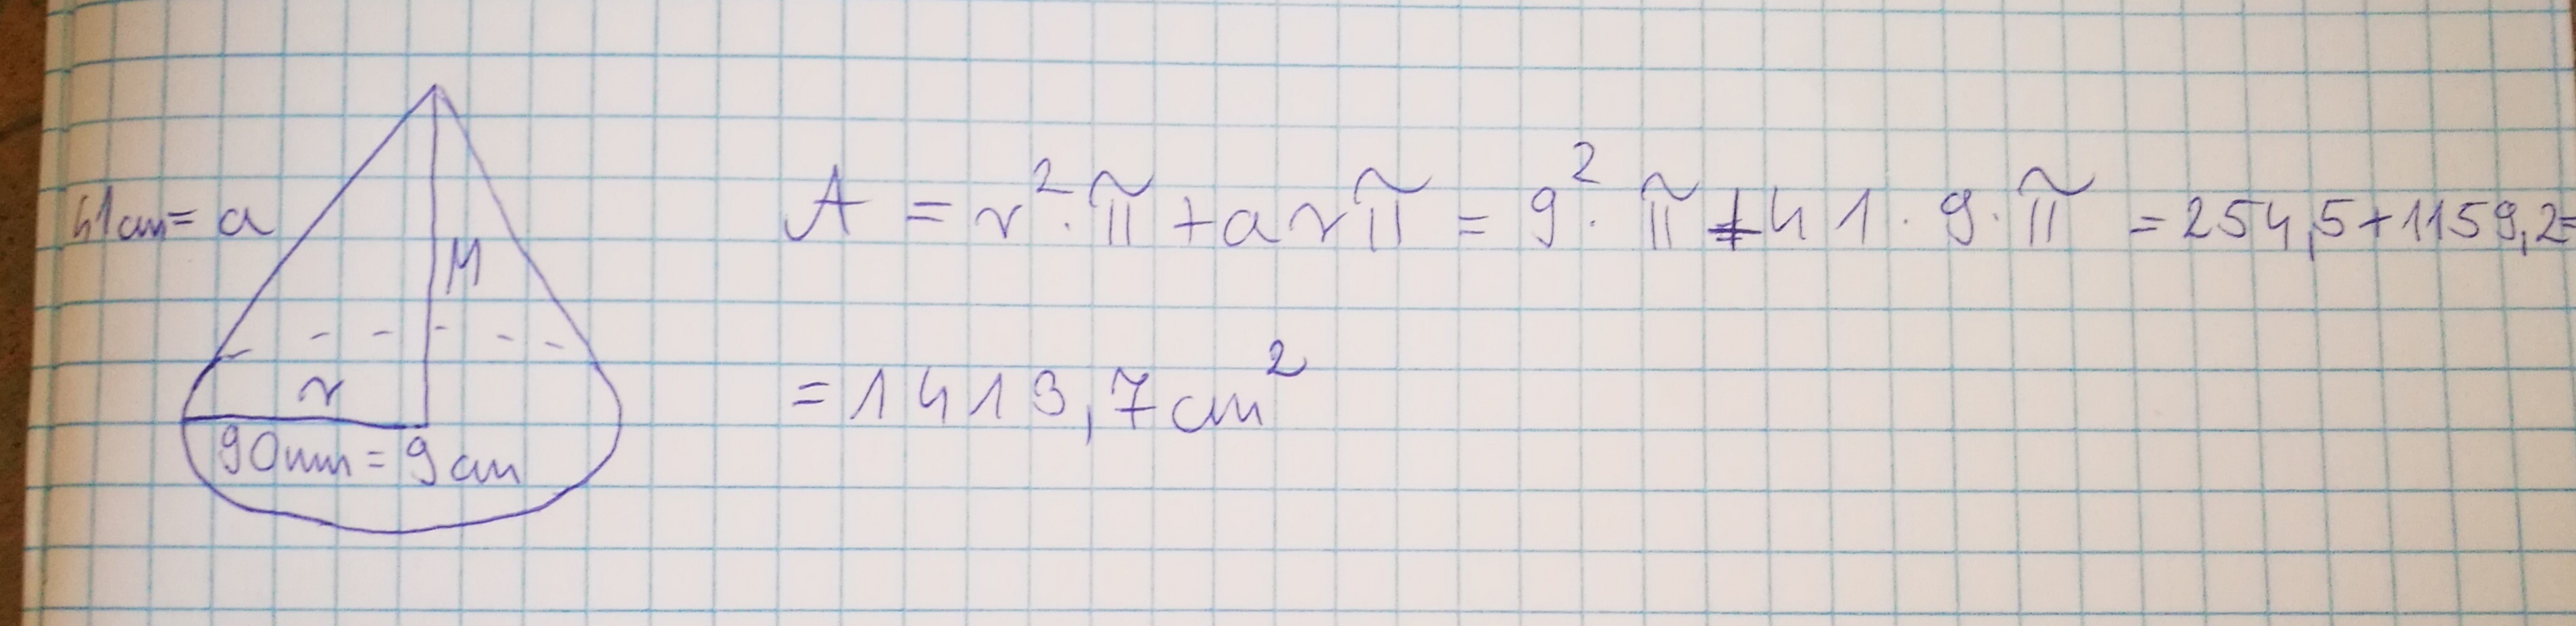 41cm = a
M
r
90mm = 9cm
A = r²·π + arπ = 9²·π + 41·9·π = 254,5+1159,2=
= 1413,7cm²